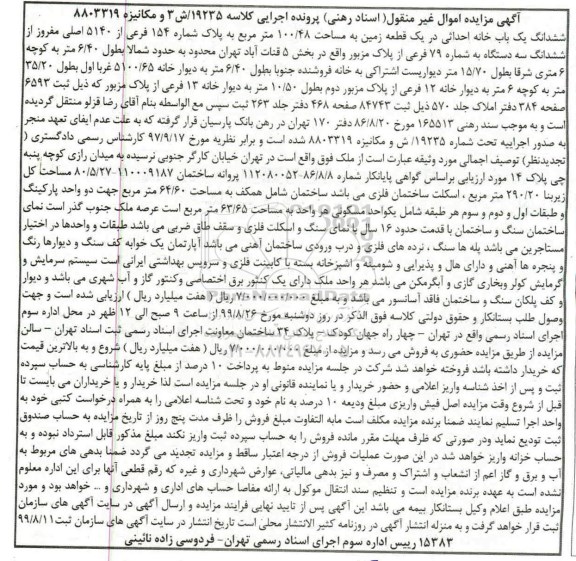 آگهی مزایده اموال غیر منقول( اسناد رهنی) پرونده اجرایی کلاسه ۱۹۲۳۵/ش۳ و مکانیزه ۸۸۰۳۳۱۹
ششدانگ یک باب خانه احداثی در یک قطعه زمین به مساحت ۱۰۰/۴۸ متر مربع به پلاک شماره ۱۵۴ فرعی از ۵۱۴۰ اصلی مفروز از
ششدانگ سه دستگاه به شماره ۷۹ فرعی از پلاک مزبور واقع در بخش ۵ قنات آباد تهران محدود به حدود شمالا بطول ۶/۴۰ متر به کوچه
۶ متری شرقا بطول ۱۵/۷۰ متر دیواریست اشتراکی به خانه فروشنده جنوبا بطول ۶/۴۰ متر به دیوار خانه ۵۱۰۰/۶۵ غربا اول بطول ۳۵/۲۰
متر به کوچه ۶ متر به دیوار خانه ۱۲ فرعی از پلاک مزبور دوم بطول ۱۰/۵۰ متر به دیوار خانه ۱۳ فرعی از پلاک مزبور که ذیل ثبت ۶۵۹۳
صفحه ۳۸۴ دفتر املاک جلد ۵۷۰ ذیل ثبت ۸۴۷۴۳ صفحه ۴۶۸ دفتر جلد ۲۶۳ ثبت سپس مع الواسطه بنام آقای رضا قزلو منتقل گردیده
است و به موجب سند رهنی ۱۶۵۵۱۳ مورخ ۸۶/۸/۲۰ دفتر ۱۷۰ تهران در رهن بانک پارسیان قرار گرفته که به علت عدم ایفای تعهد منجر
به صدور اجراییه تحت شماره ۱۹۲۳۵/ ش و مکانیزه ۸۸۰۳۳۱۹ شده است و برابر نظریه مورخ ۹۷/۹/۱۷ کارشناس رسمی دادگستری (
تجدیدنظر) توصیف اجمالی مورد وثیقه عبارت است از ملک فوق واقع است در تهران خیابان کارگر جنوبی نرسیده به میدان رازی کوچه پنبه
چی پلاک ۱۴ مورد ارزیابی براساس گواهی پایانکار شماره ۱۱۲۰۸۰۰۵۲-۸۶/۸/۸ پروانه ساختمان ۱۱۰۰۰۹۱۸۷-۸۰/۵/۲۷ مساحت کل
زیربنا ۲۹۰/۲۰ متر مربع ، اسکلت ساختمان فلزی می باشد ساختمان شامل همکف به مساحت ۶۴/۶۰ متر مربع جهت دو واحد پارکینگ
و طبقات اول و دوم و سوم هر طبقه شامل یکواحد مسکونی هر واحد به مساحت ۶۳/۶۵ متر مربع است عرصه ملک جنوب گذر است نمای
ساختمان سنگ و ساختمان با قدمت حدود ۱۶ سال با نمای سنگ و اسکلت فلزی و سقف طاق ضربی می باشد طبقات و واحدها در اختیار
مستاجرین می باشد پله ها سنگ ، نرده های فلزی و درب ورودی ساختمان آهنی می باشد آپارتمان یک خوابه کف سنگ و دیوارها رنگ
و پنجره ها آهنی و دارای هال و پذیرایی و شومینه و آشپزخانه بسته با کابینت فلزی و سرویس بهداشتی ایرانی است سیستم سرمایش و
گرمایش کولر وبخاری گازی و آبگرمکن می باشد هر واحد ملک دارای یک کنتور برق اختصاصی وکنتور گاز و آب شهری می باشد و دیوار
و کف پلکان سنگ و ساختمان فاقد آسانسور می باشد و به مبلغ ۷/۰۰۰/۰۰۰/۰۰۰ ریال( هفت میلیارد ریال ) ارزیابی شده است و جهت
وصول طلب بستانکار و حقوق دولتی کلاسه فوق الذکر در روز دوشنبه مورخ ۹۹/۸/۲۶ از ساعت ۹ صبح الی ۱۲ ظهر در محل اداره سوم
اجرای اسناد رسمی واقع در تهران – چهار راه جهان کودک – پلاک ۳۴ ساختمان معاونت اجرای اسناد رسمی ثبت اسناد تهران – سالن
مزایده از طریق مزایده حضوری به فروش می رسد و مزایده از مبلغ ۷/۰۰۰/۰۰۰/۰۰۰ ریال ( هفت میلیارد ریال ) شروع و به بالاترین قیمت
که خریدار داشته باشد فروخته خواهد شد شرکت در جلسه مزایده منوط به پرداخت ۱۰ درصد از مبلغ پایه کارشناسی به حساب سپرده
ثبت و پس از اخذ شناسه واریز اعلامی و حضور خریدار و یا نماینده قانونی او در جلسه مزایده است لذا خریدار و یا خریداران می بایست تا
قبل از شروع وقت مزایده اصل فیش واریزی مبلغ ودیعه ۱۰ درصد به نام خود و تحت شناسه اعلامی را به همراه درخواست کتبی خود به
واحد اجرا تسلیم نمایند ضمنا برنده مزایده مکلف است مابه التفاوت مبلغ فروش را ظرف مدت پنج روز از تاریخ مزایده به حساب صندوق
ثبت تودیع نماید ودر صورتی که ظرف مهلت مقرر مانده فروش را به حساب سپرده ثبت واریز نکند مبلغ مذکور قابل استرداد نبوده و به
حساب خزانه واریز خواهد شد در این صورت عملیات فروش از درجه اعتبار ساقط و مزایده تجدید می گردد ضمنا بدهی های مربوط به
آب و برق و گاز اعم از انشعاب و اشتراک و مصرف و نیز بدهی مالیاتی، عوارض شهرداری و غیره که رقم قطعی آنها برای این اداره معلوم
نشده است به عهده برنده مزایده است و تنظیم سند انتقال موکول به ارائه مفاصا حساب های اداری و شهرداری و ... خواهد بود و مورد
مزایده طبق اعلام وکیل بستانکار بیمه می باشد این آگهی پس از تایید نهایی فرایند مزایده و ارسال آگهی در سایت آگهی های سازمان
ثبت قرار خواهد گرفت و به منزله انتشار آگهی در روزنامه کثیر الانتشار محلی است تاریخ انتشار در سایت آگهی های سازمان ثبت ۹۹/۸/۱۱
۱۵۳۸۳ رییس اداره سوم اجرای اسناد رسمی تهران- فردوسی زاده نائینی